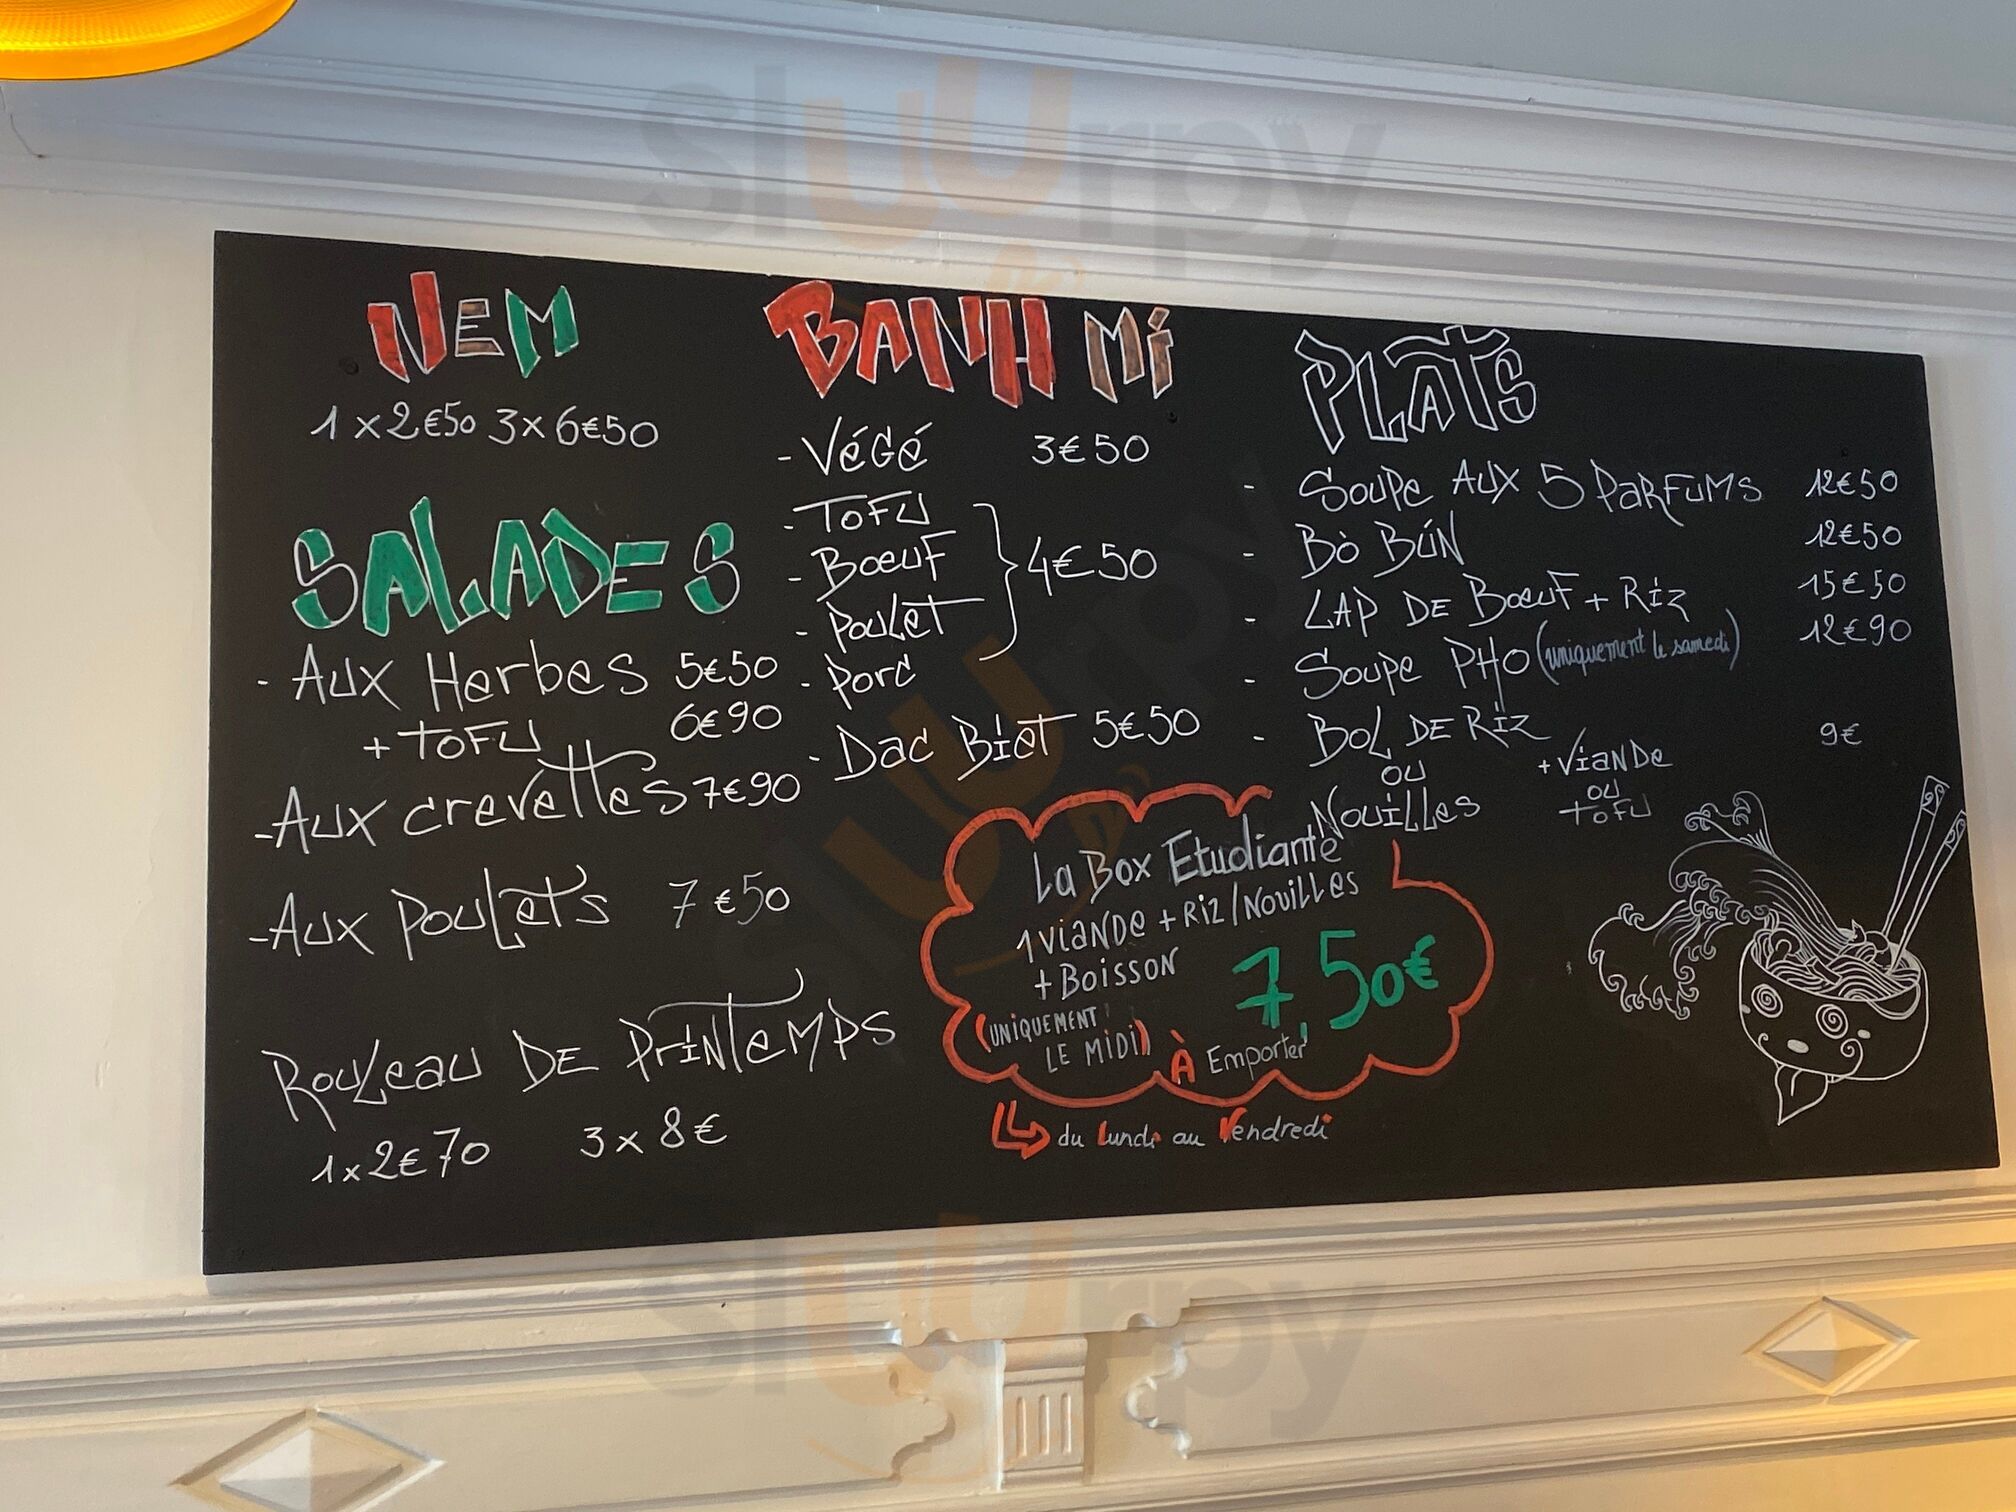 NEM
1 x 2€50 3 x 6€50
SALADES
- Aux Herbes 5€50
+ TOFU 6€90
- Aux crevettes 7€90
- Aux Poulets 7€50
Rouleau DE PrINTeMPS
1 x 2€70 3 x 8€
BANH Mí
- Végé 3€50
- TOFU
- Bœuf
- Poulet
- Porc
4€50
- Dac Biet 5€50
PLATS
- Soupe AUX 5 PaRFUMS 12€50
- Bò BÚN 12€50
- LAP DE Bœuf + Riz 15€50
- Soupe PHO (uniquement le samedi) 12€90
- Bol DE Riz
ou
Nouilles
+ ViaNDe
ou
TOFU
9€
La Box Etudiante
1 ViaNDe + Riz/Nouilles
+ Boisson
7,50€
(UNIQUEMENT
LE MIDI)
À Emporter
du Lundi au Vendredi
sluurpy
sluurpy
sluurpy